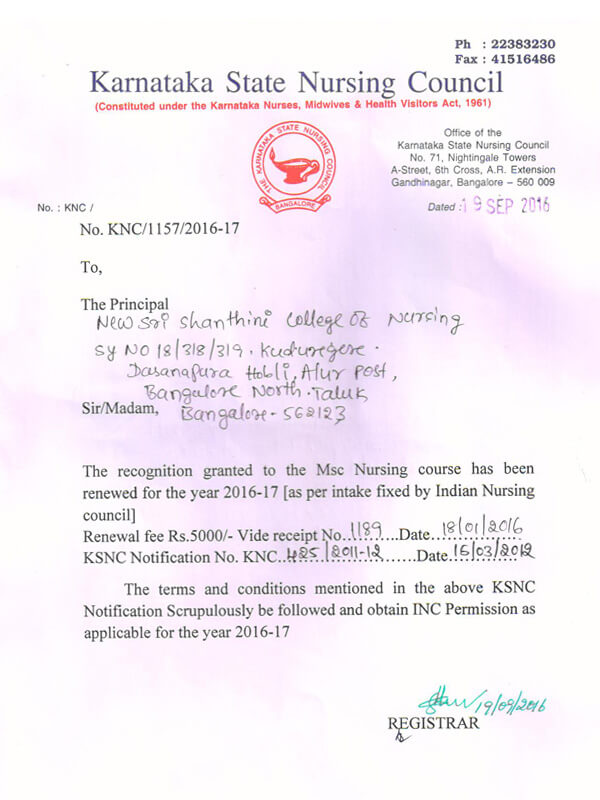 Ph : 22383230
Fax : 41516486
Karnataka State Nursing Council
(Constituted under the Karnataka Nurses, Midwives & Health Visitors Act, 1961)
THE KARNATAKA STATE NURSING COUNCIL
BANGALORE
Office of the
Karnataka State Nursing Council
No. 71, Nightingale Towers
A-Street, 6th Cross, A.R. Extension
Gandhinagar, Bangalore – 560 009
No. : KNC /
Dated : 19 SEP 2016
No. KNC/1157/2016-17
To,
The Principal
New Sri Shanthini College Of Nursing
Sy No 18/318/319. Kuduregere.
Dasanapura Hobli, Alur Post,
Bangalore North. Taluk
Sir/Madam, Bangalore - 562123
The recognition granted to the Msc Nursing course has been
renewed for the year 2016-17 [as per intake fixed by Indian Nursing
council]
Renewal fee Rs.5000/- Vide receipt No..1189....Date..18/01/2016
KSNC Notification No. KNC..425/2011-12.......Date..15/03/2012
The terms and conditions mentioned in the above KSNC
Notification Scrupulously be followed and obtain INC Permission as
applicable for the year 2016-17
19/09/2016
REGISTRAR